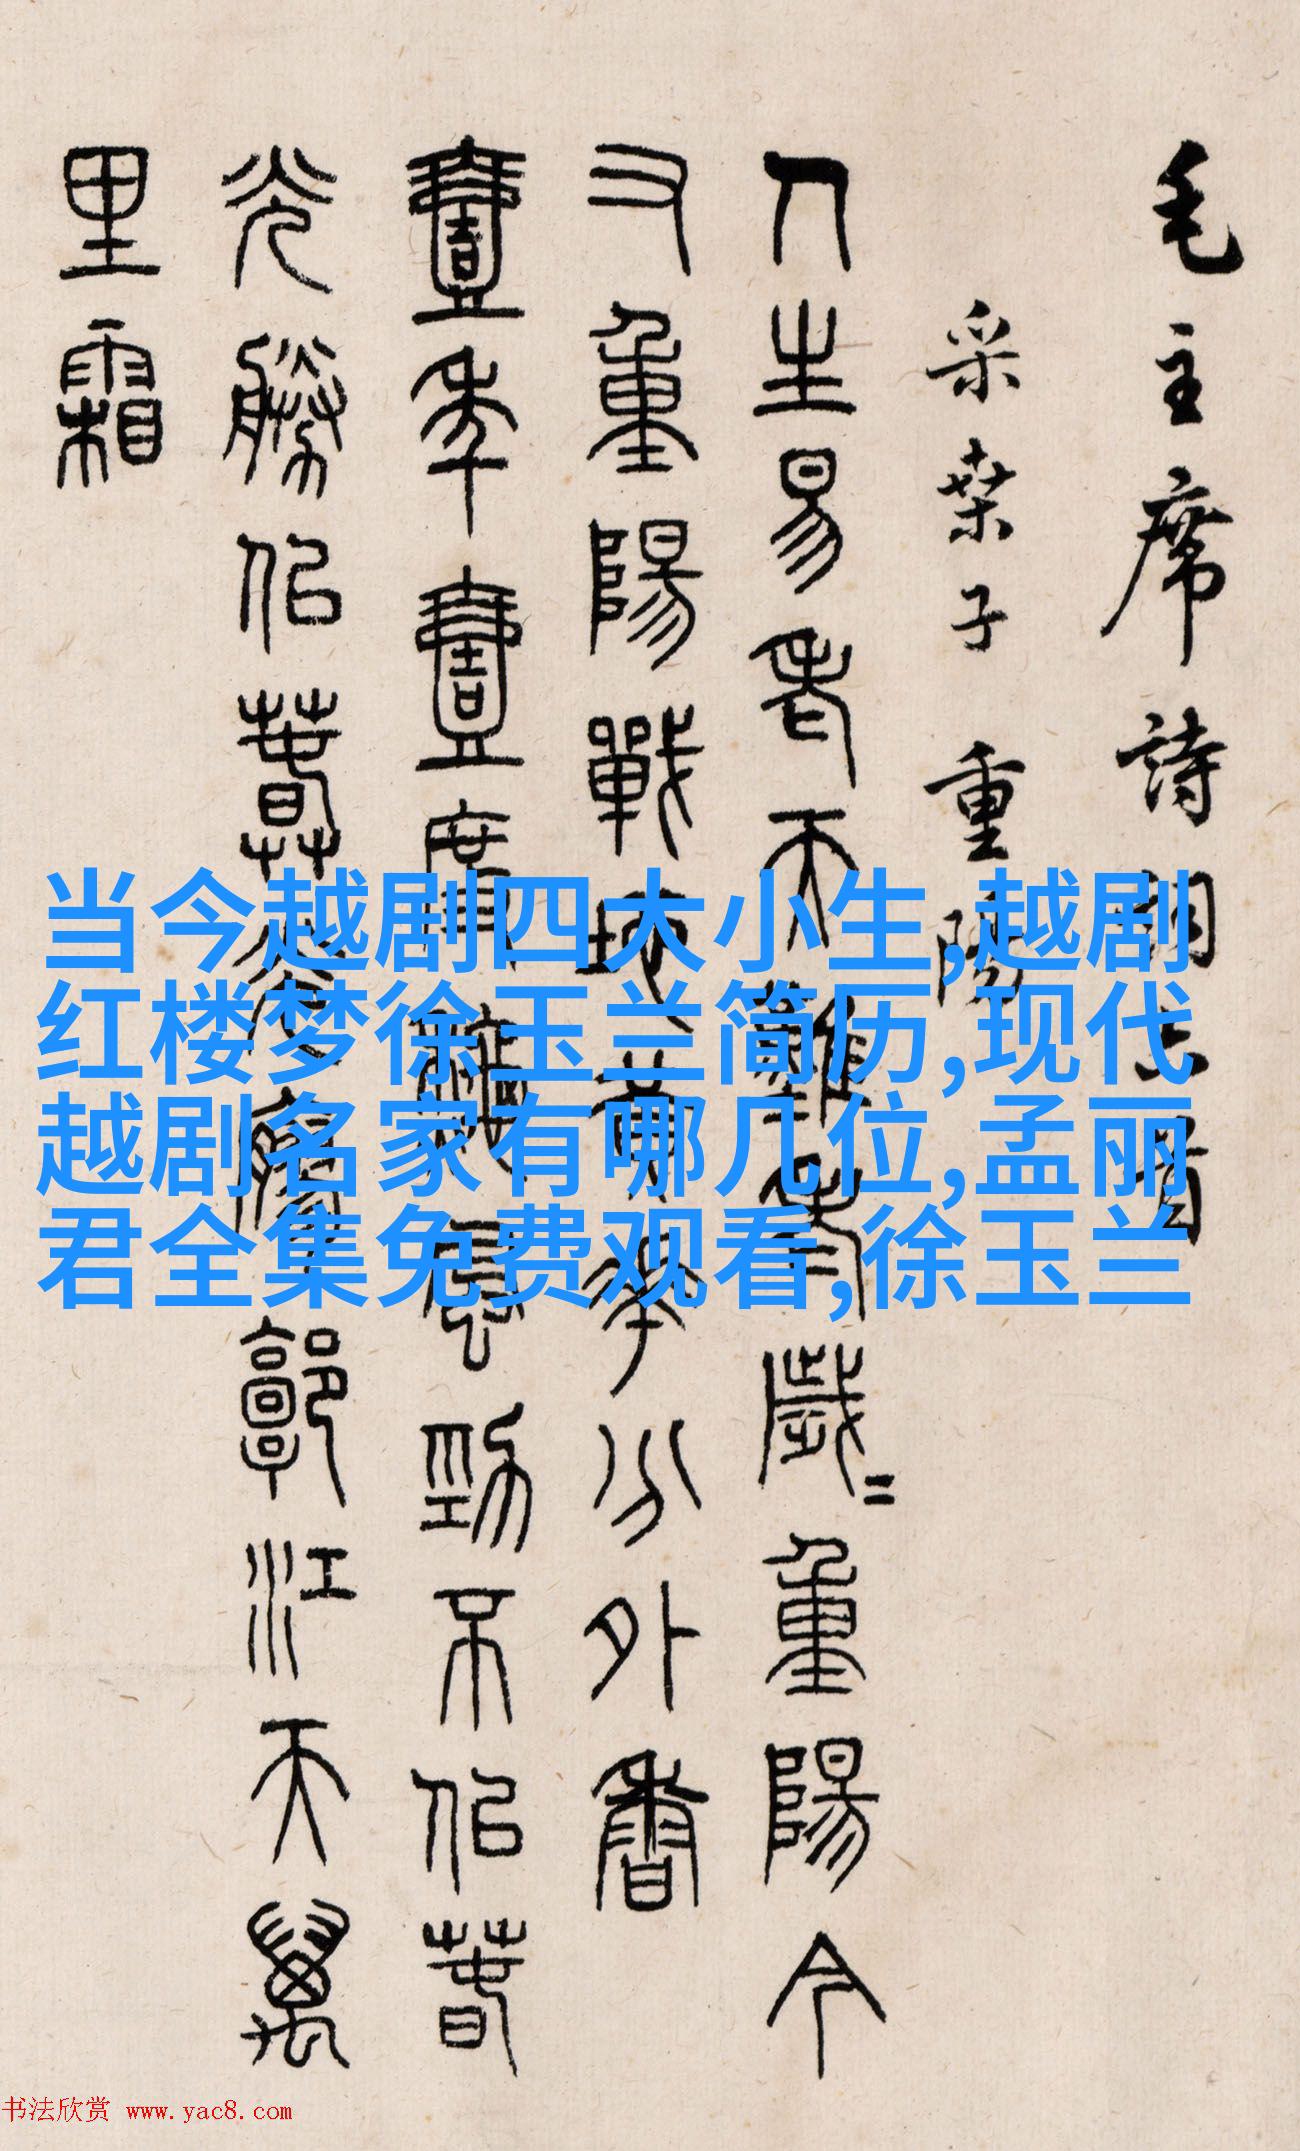 毛主席詩詞首
采桑子 重陽
人生易老天難老歲〻重陽今
又重陽戰地黃華分外香
壹年壹度秋風勁不佀春
光勝佀春光廫郭江天萬
里霜
当今越剧四大小生,越剧
红楼梦徐玉兰简历,现代
越剧名家有哪几位,孟丽
君全集免费观看,徐玉兰
书法欣赏 www.yac8.com